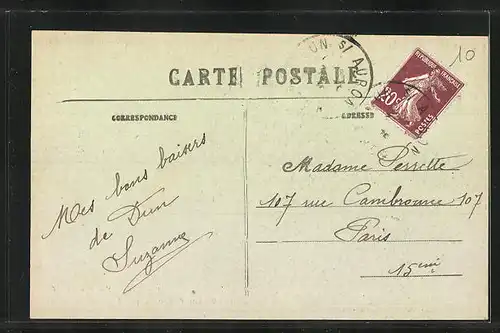 10
UN S/ AURON
REPUBLIQUE FRANÇAISE
20c
POSTES
CARTE POSTALE
CORRESPONDANCE
ADRESSE
Mes bons baisers
de Dun
Suzanne
Madame Perrette
107 rue Cambronne 107
Paris
15ème